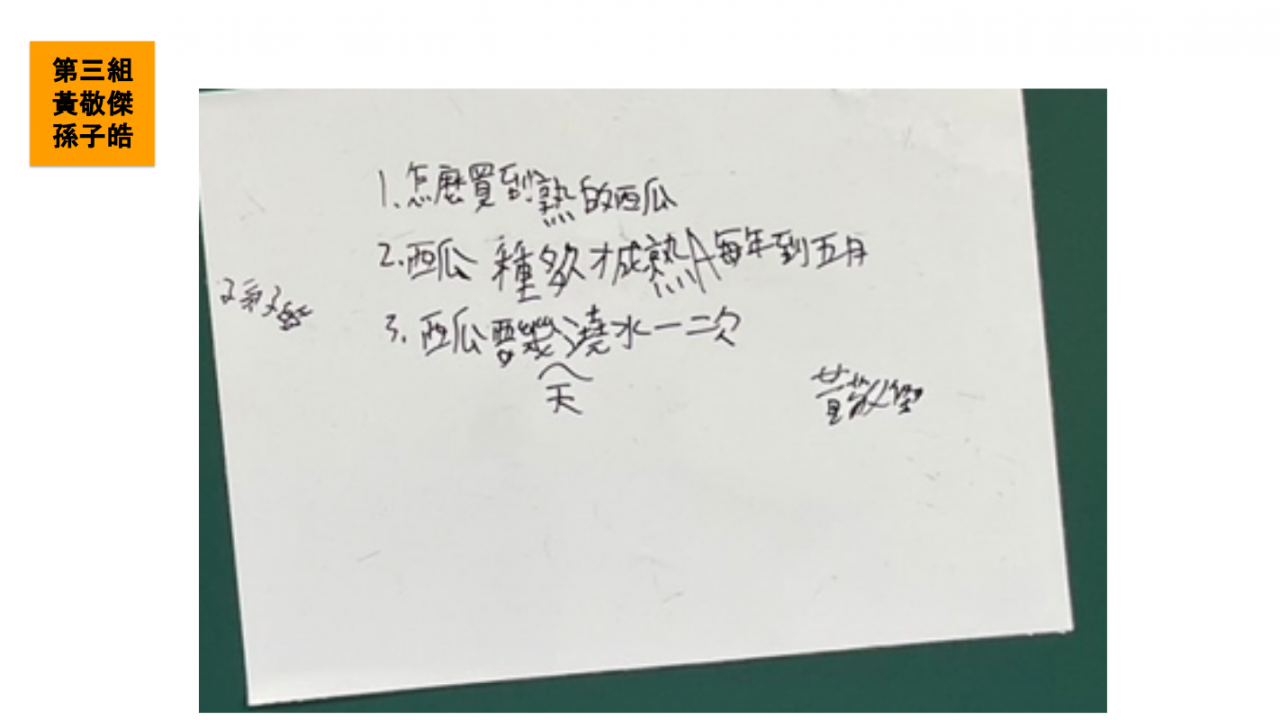 第三組
黃敬傑
孫子皓
1.怎麼買到熟的西瓜
2.西瓜種多久才成熟A每年到五月
3.西瓜要幾天澆水一二次
孫子皓
黃敬傑